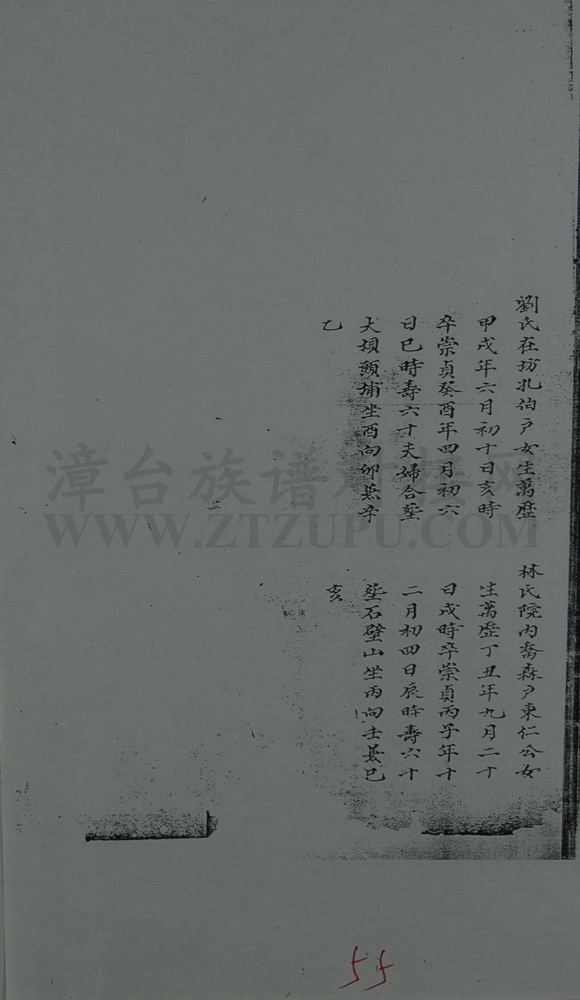 劉氏在坊孔伯户女生萬曆
甲戌年六月初十日亥時
卒崇貞癸酉年四月初六
日巳時壽六十夫婦合塟
大垻頭埔坐酉向卯兼辛
乙
林氏院内喬森户東仁公女
生萬曆丁丑年九月二十
日戌時卒崇貞丙子年十
二月初四日辰時壽六十
塟石壁山坐丙向壬兼巳
亥
漳台族谱对接网
WWW.ZTZUPU.COM
55